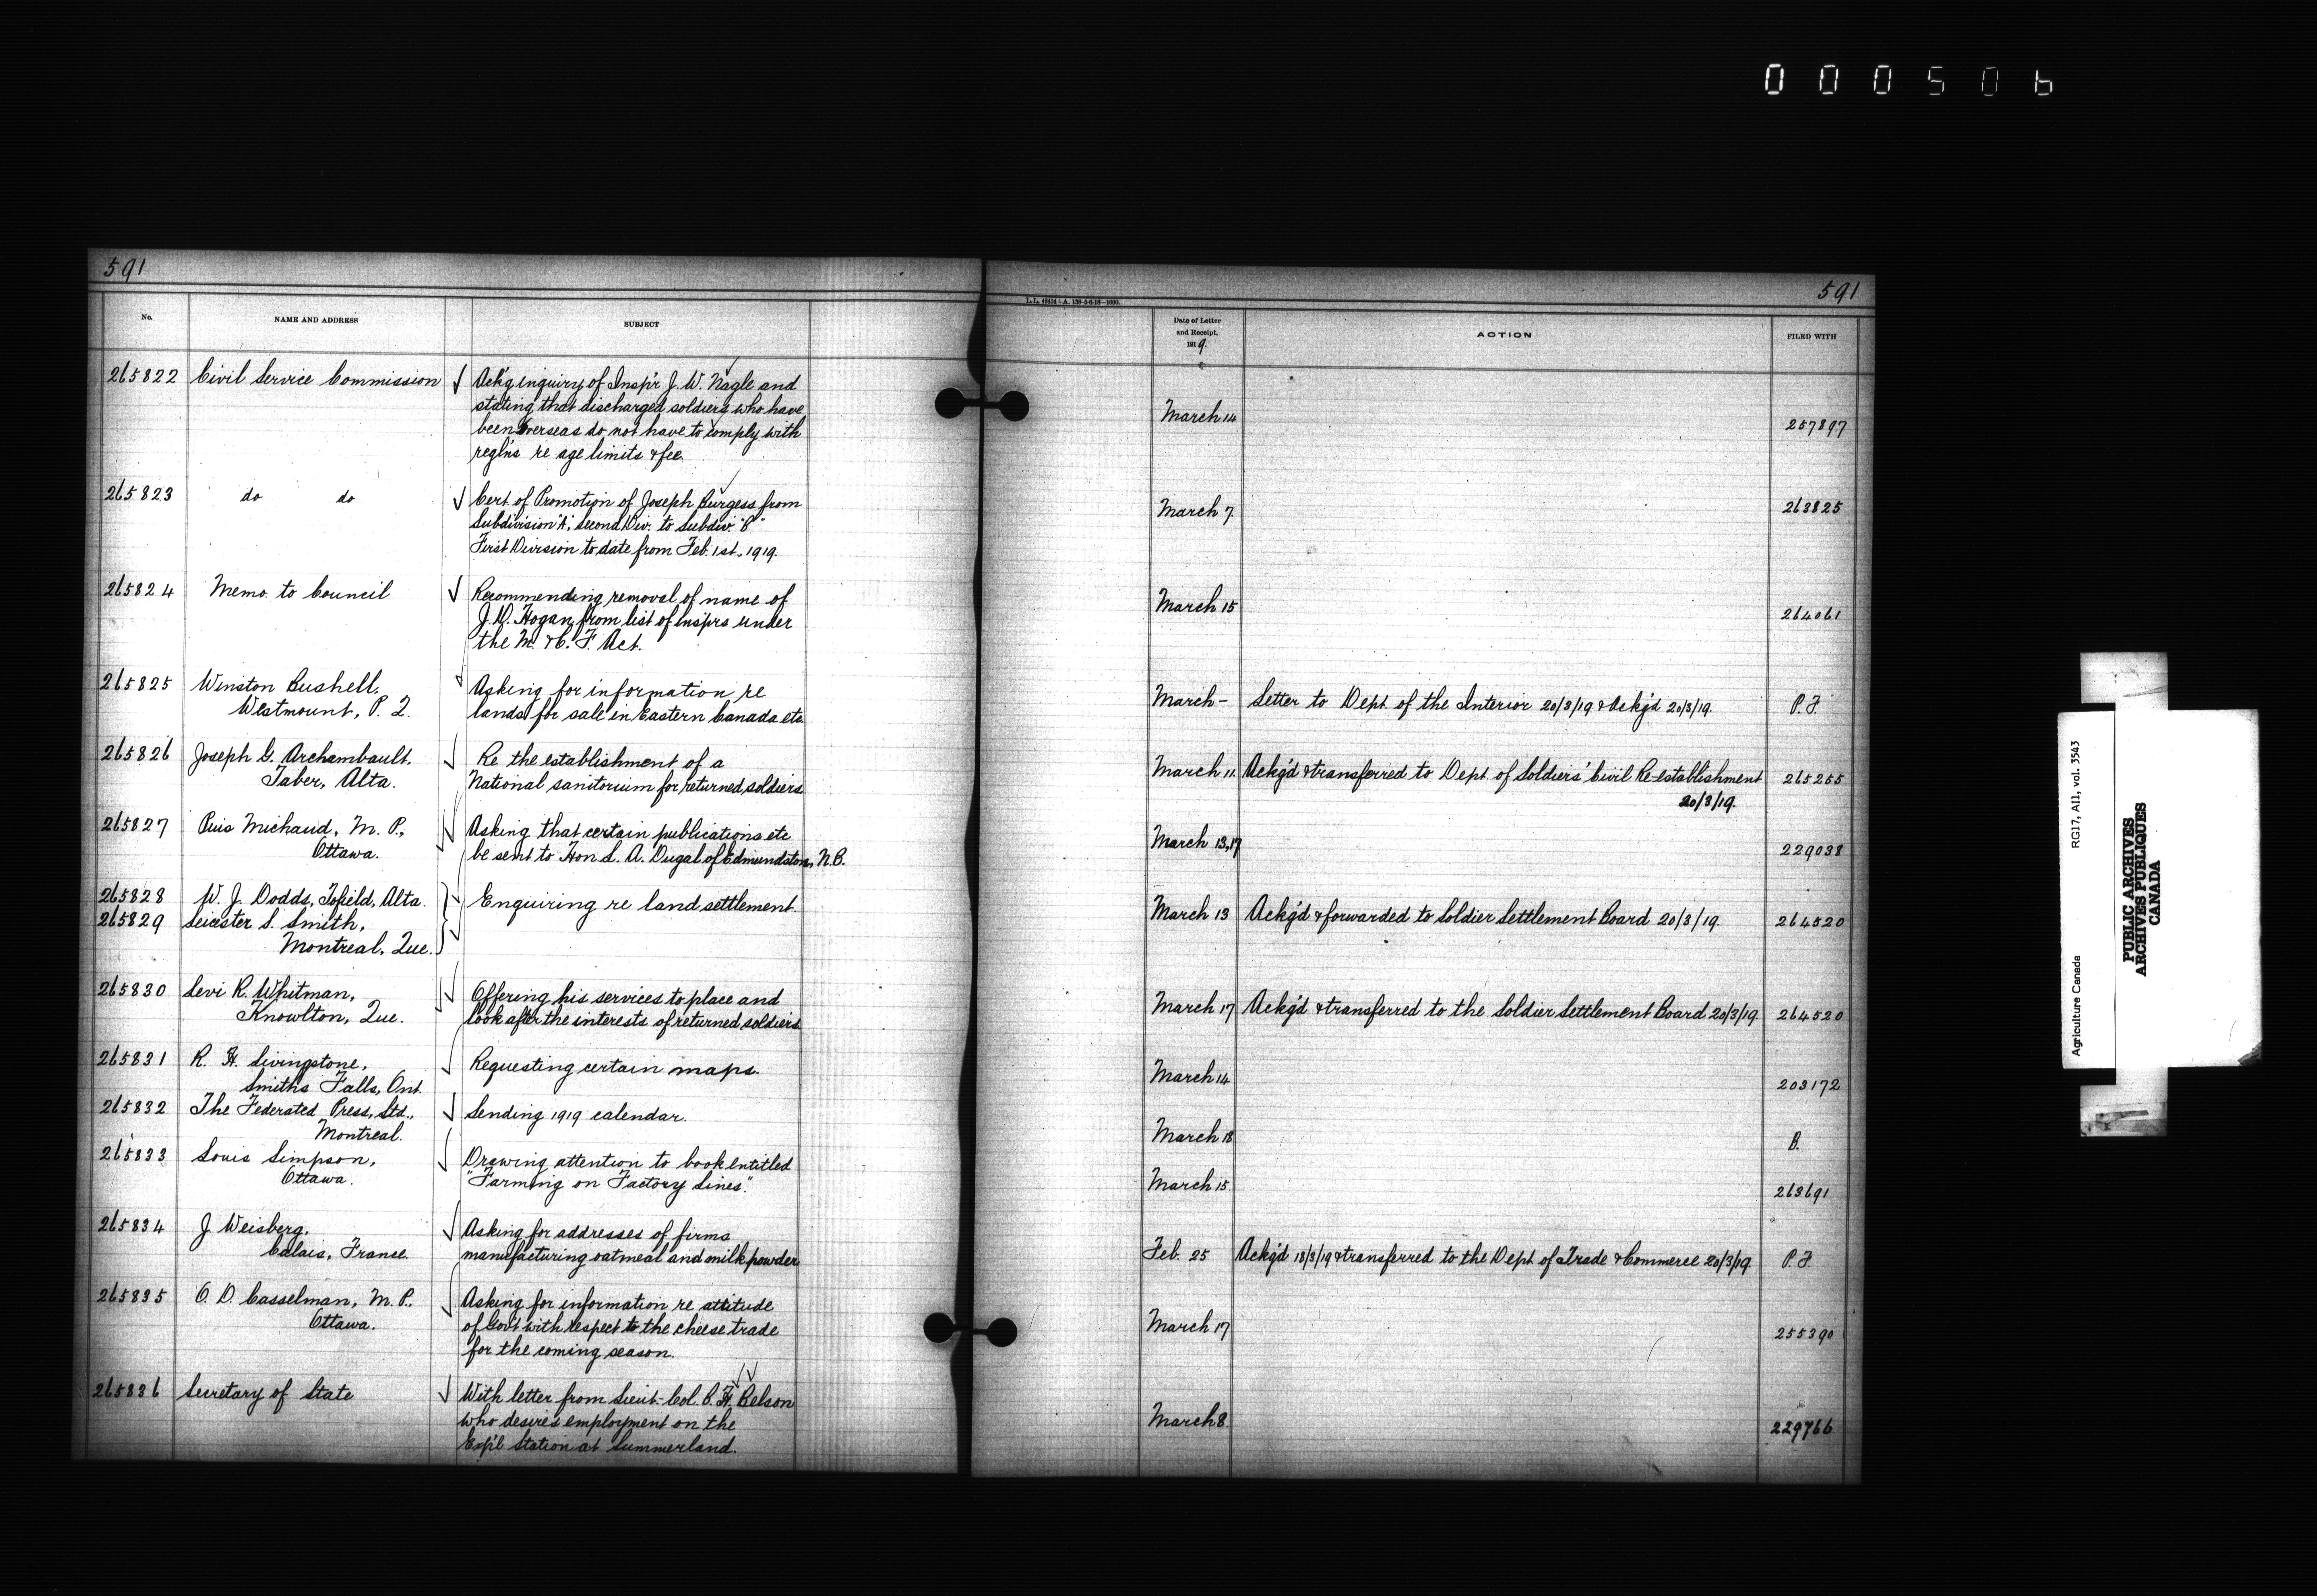 000506
591
No.
NAME AND ADDRESS
SUBJECT
265822 Civil Service Commission Ack'g inquiry of Insp'r J. W. Nagle and
stating that discharged soldiers who have
been Overseas do not have to comply with
reg'ns re age limits & fee.
265823 do do Cert. of Promotion of Joseph Burgess from
Subdivision "A", Second Div. to Subdiv. "B"
First Division to date from Feb. 1st., 1919.
265824 Memo. to Council Recommending removal of name of
J. D. Hogan from list of Insp'rs under
the M. & C. F. Act.
265825 Winston Bushell, Asking for information re
Westmount, P. Q. lands for sale in Eastern Canada etc.
265826 Joseph G. Archambault, Re the establishment of a
Taber, Alta. National sanitorium for returned soldiers
265827 Puis Michaud, M. P., Asking that certain publications etc
Ottawa. be sent to Hon L. A. Dugal of Edmundston, N.B.
265828 W. J. Dodds, Tofield, Alta. Enquiring re land settlement.
265829 Leicester S. Smith,
Montreal, Que.
265830 Levi R. Whitman, Offering his services to place and
Knowlton, Que. look after the interests of returned soldiers
265831 R. H. Livingstone, Requesting certain maps.
Smiths Falls, Ont.
265832 The Federated Press, Ltd., Sending 1919 calendar.
Montreal.
265833 Louis Simpson, Drawing attention to book entitled
Ottawa. "Farming on Factory Lines".
265834 J Weisberg, Asking for addresses of firms
Calais, France. manufacturing oatmeal and milk powder
265835 O. D. Casselman, M. P., Asking for information re attitude
Ottawa. of Gov't with respect to the cheese trade
for the coming season.
265836 Secretary of State With letter from Lieut-Col. B. H. Belson
who desires employment on the
Exp'l Station at Summerland.
591
L.L. 40434-A. 138-5-6-18-1000.
Date of Letter
and Receipt,
1919.
ACTION
FILED WITH
March 14 257897
March 7 263825
March 15 264061
March - Letter to Dept. of the Interior 20/3/19 & Ack'g'd 20/3/19. P. F.
March 11 Ackg'd & transferred to Dept of Soldiers' Civil Re-establishment 265255
20/3/19.
March 13,17 229038
March 13 Ackg'd & forwarded to Soldier Settlement Board 20/3/19. 264520
March 17 Ackg'd & transferred to the Soldier Settlement Board 20/3/19 264520
March 14 203172
March 18 B.
March 15 263691
Feb. 25 Ackg'd 18/3/19 & transferred to the Dept of Trade & Commerce 20/3/19. P. F.
March 17 255390
March 8. 229766
Agriculture Canada RG17, AII, vol. 3543
PUBLIC ARCHIVES
ARCHIVES PUBLIQUES
CANADA